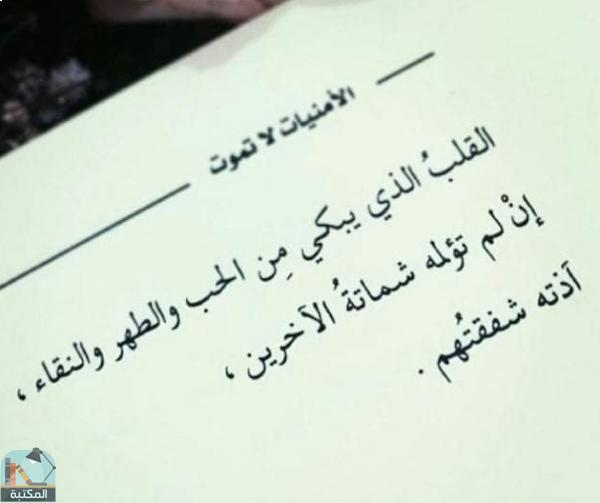 الأمنيات لا تموت
القلبُ الذي يبكي مِن الحب والطهر والنقاء ،
إنْ لم تؤلمه شماتةُ الآخرين ،
آذته شفقتُهم .
المكتبة